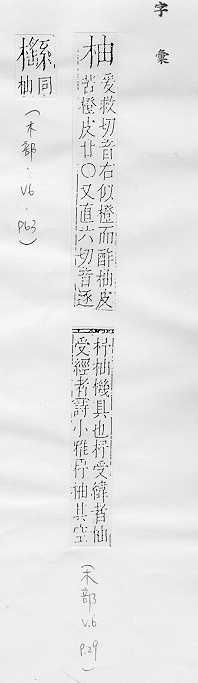 字彙
柚
爰救切音右似橙而酢柚皮
苦橙皮甘○又直六切音逐
杼柚機具也杼受緯者柚
受經者詩小雅杼柚其空
(木部 v.6 p.29)
櫾
同
柚
(木部.v6.p63)